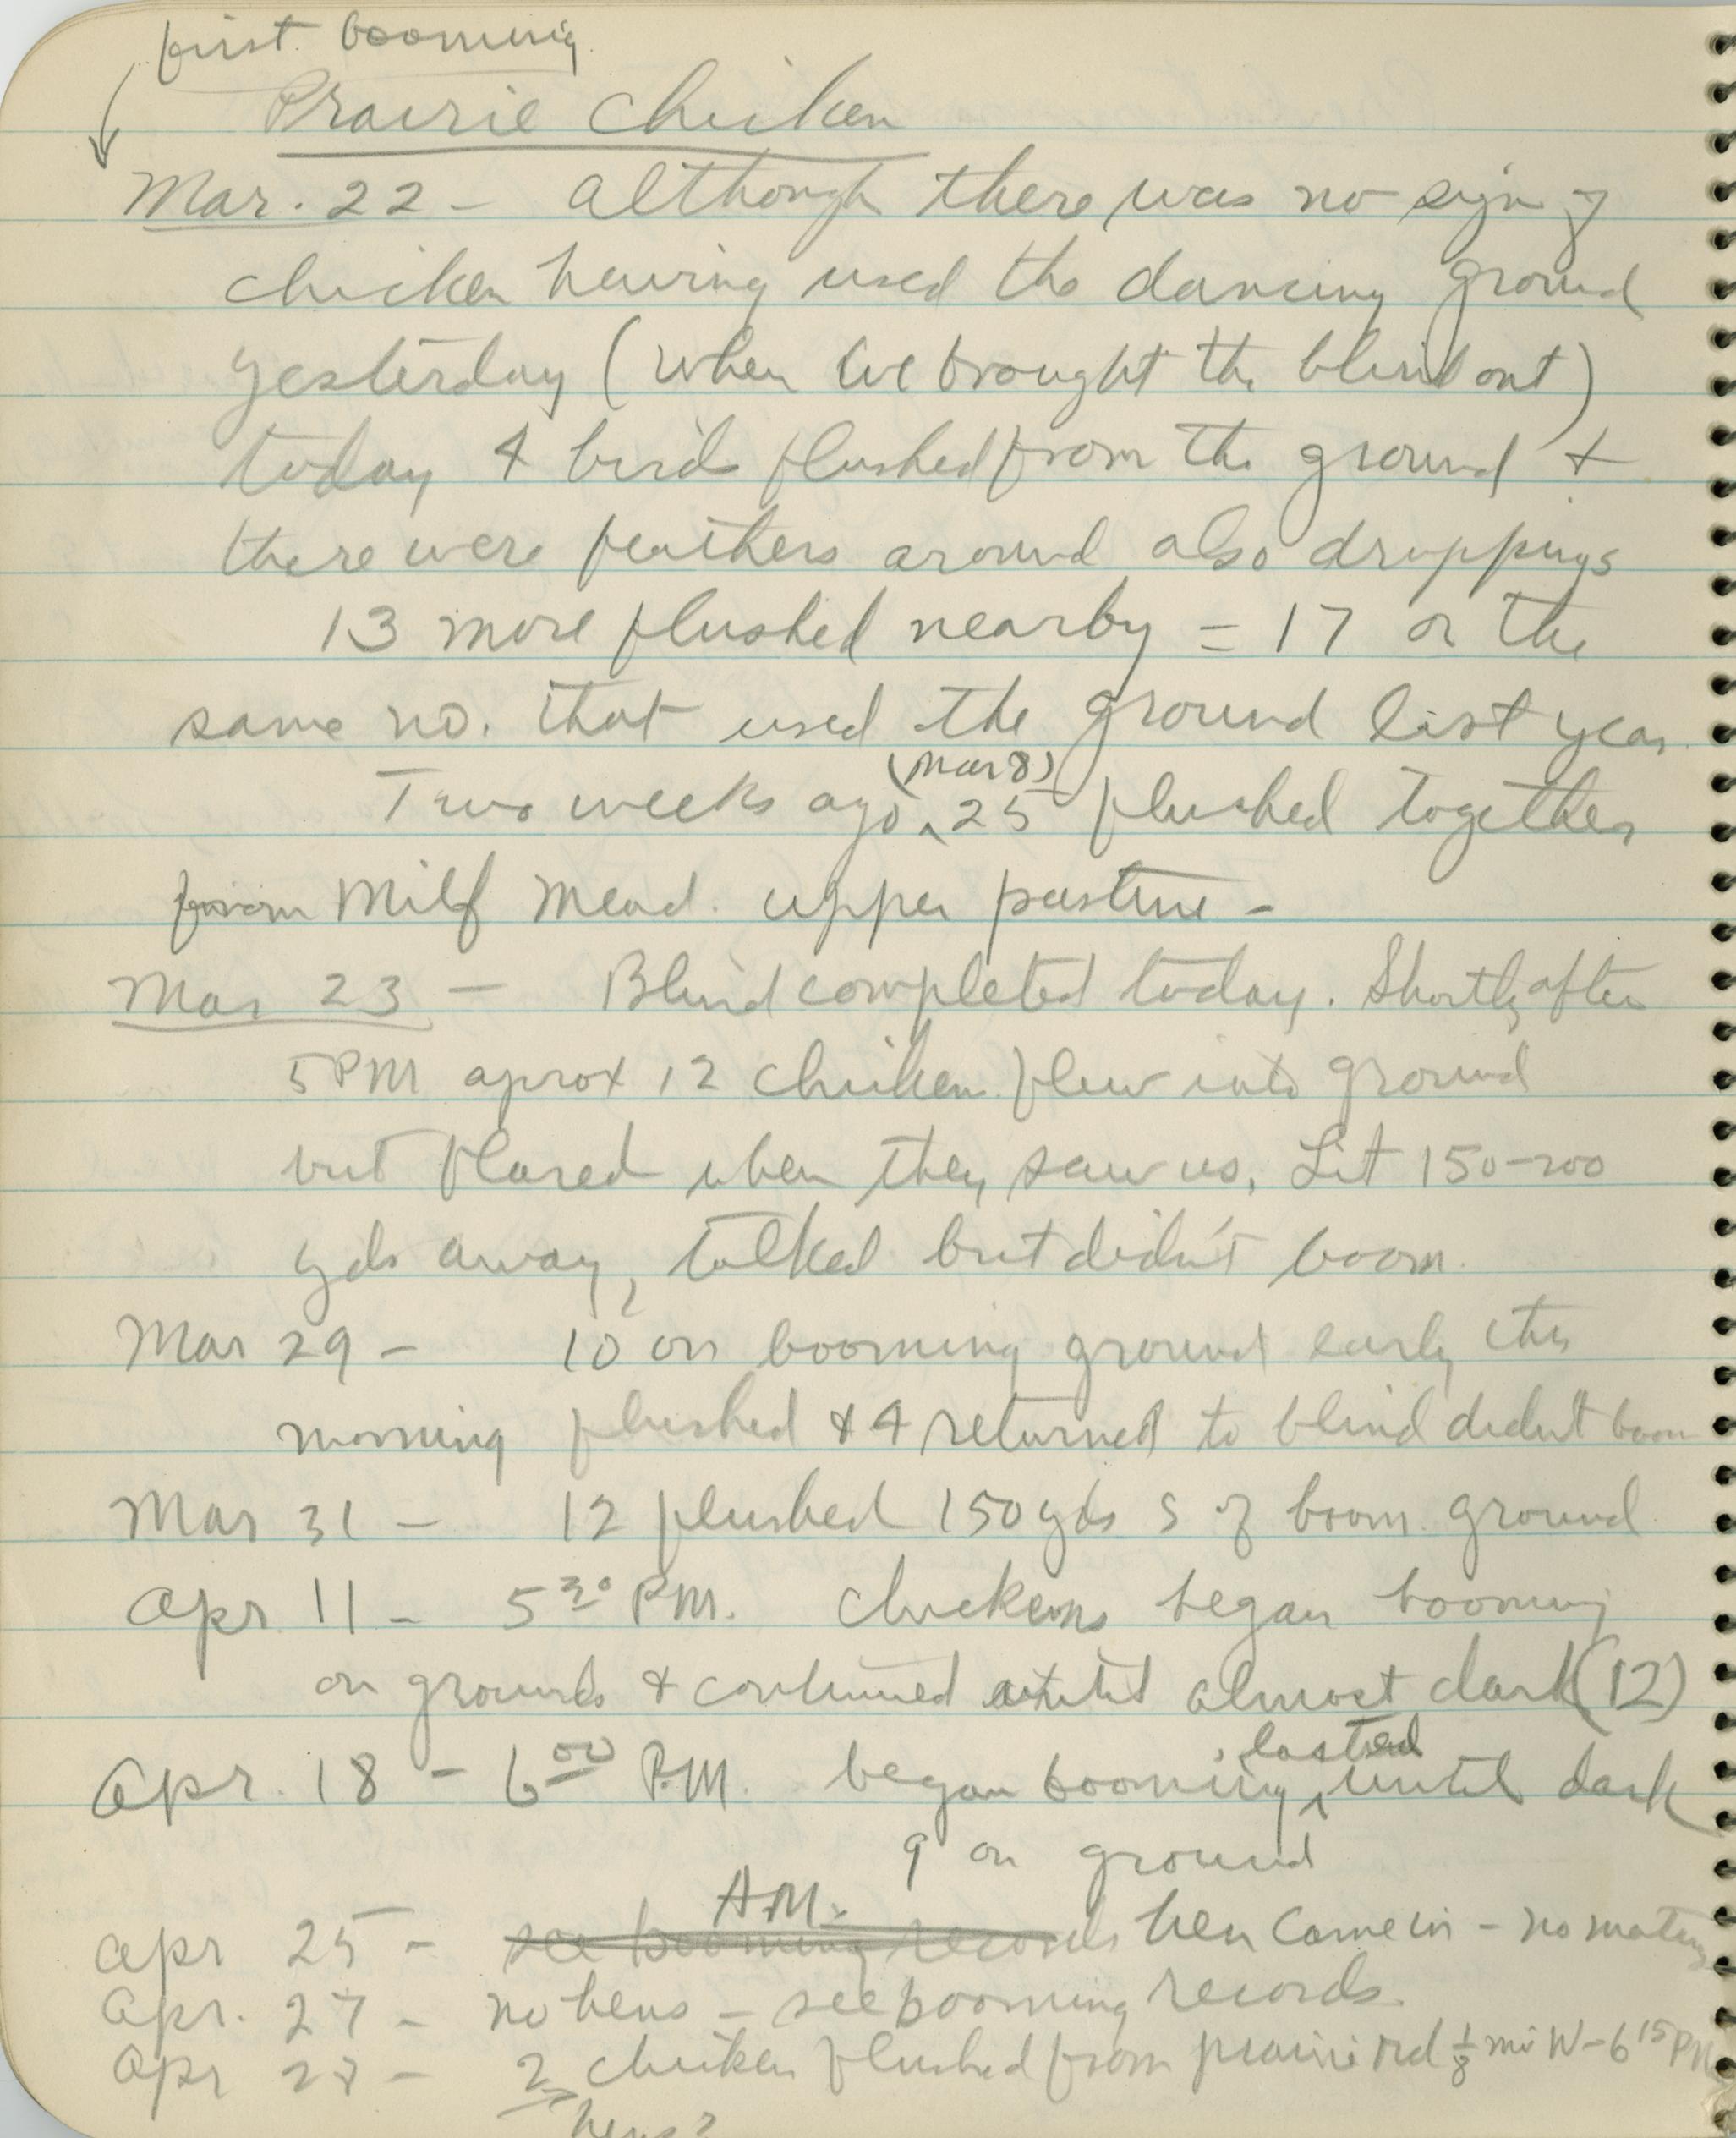 first booming
Prairie Chicken
Mar. 22 - Although there was no sign of
chicken having used the dancing ground
yesterday (when we brought the blind out)
today 4 birds flushed from the ground +
there were feathers around also droppings
13 more flushed nearby = 17 or the
same no. that used the ground last year.
(Mar 8)
Two weeks ago ^ 25 flushed together
from Milf Mead. upper pasture -
Mar 23 - Blind completed today. Shortly after
5 PM aprox 12 chicken flew into ground
but flared when they saw us, Lit 150-200
yds away, talked but didn't boom.
Mar 29 - 10 on booming ground early this
morning flushed & 4 returned to blind didn't boom
Mar 31 - 12 flushed 150 yds S of boom. ground
Apr 11 - 5 30 P.M. Chickens began booming
on grounds & continued until almost dark (12)
, lasted
Apr. 18 - 6 00 P.M. began booming ^ until dark
9 on ground
A.M.
Apr 25 - see booming records hen came in - no mating
Apr. 27 - no hens - see booming records.
Apr 28 - 2 chicken flushed from prairie rd 1/8 mi W - 6 15 PM
hens?